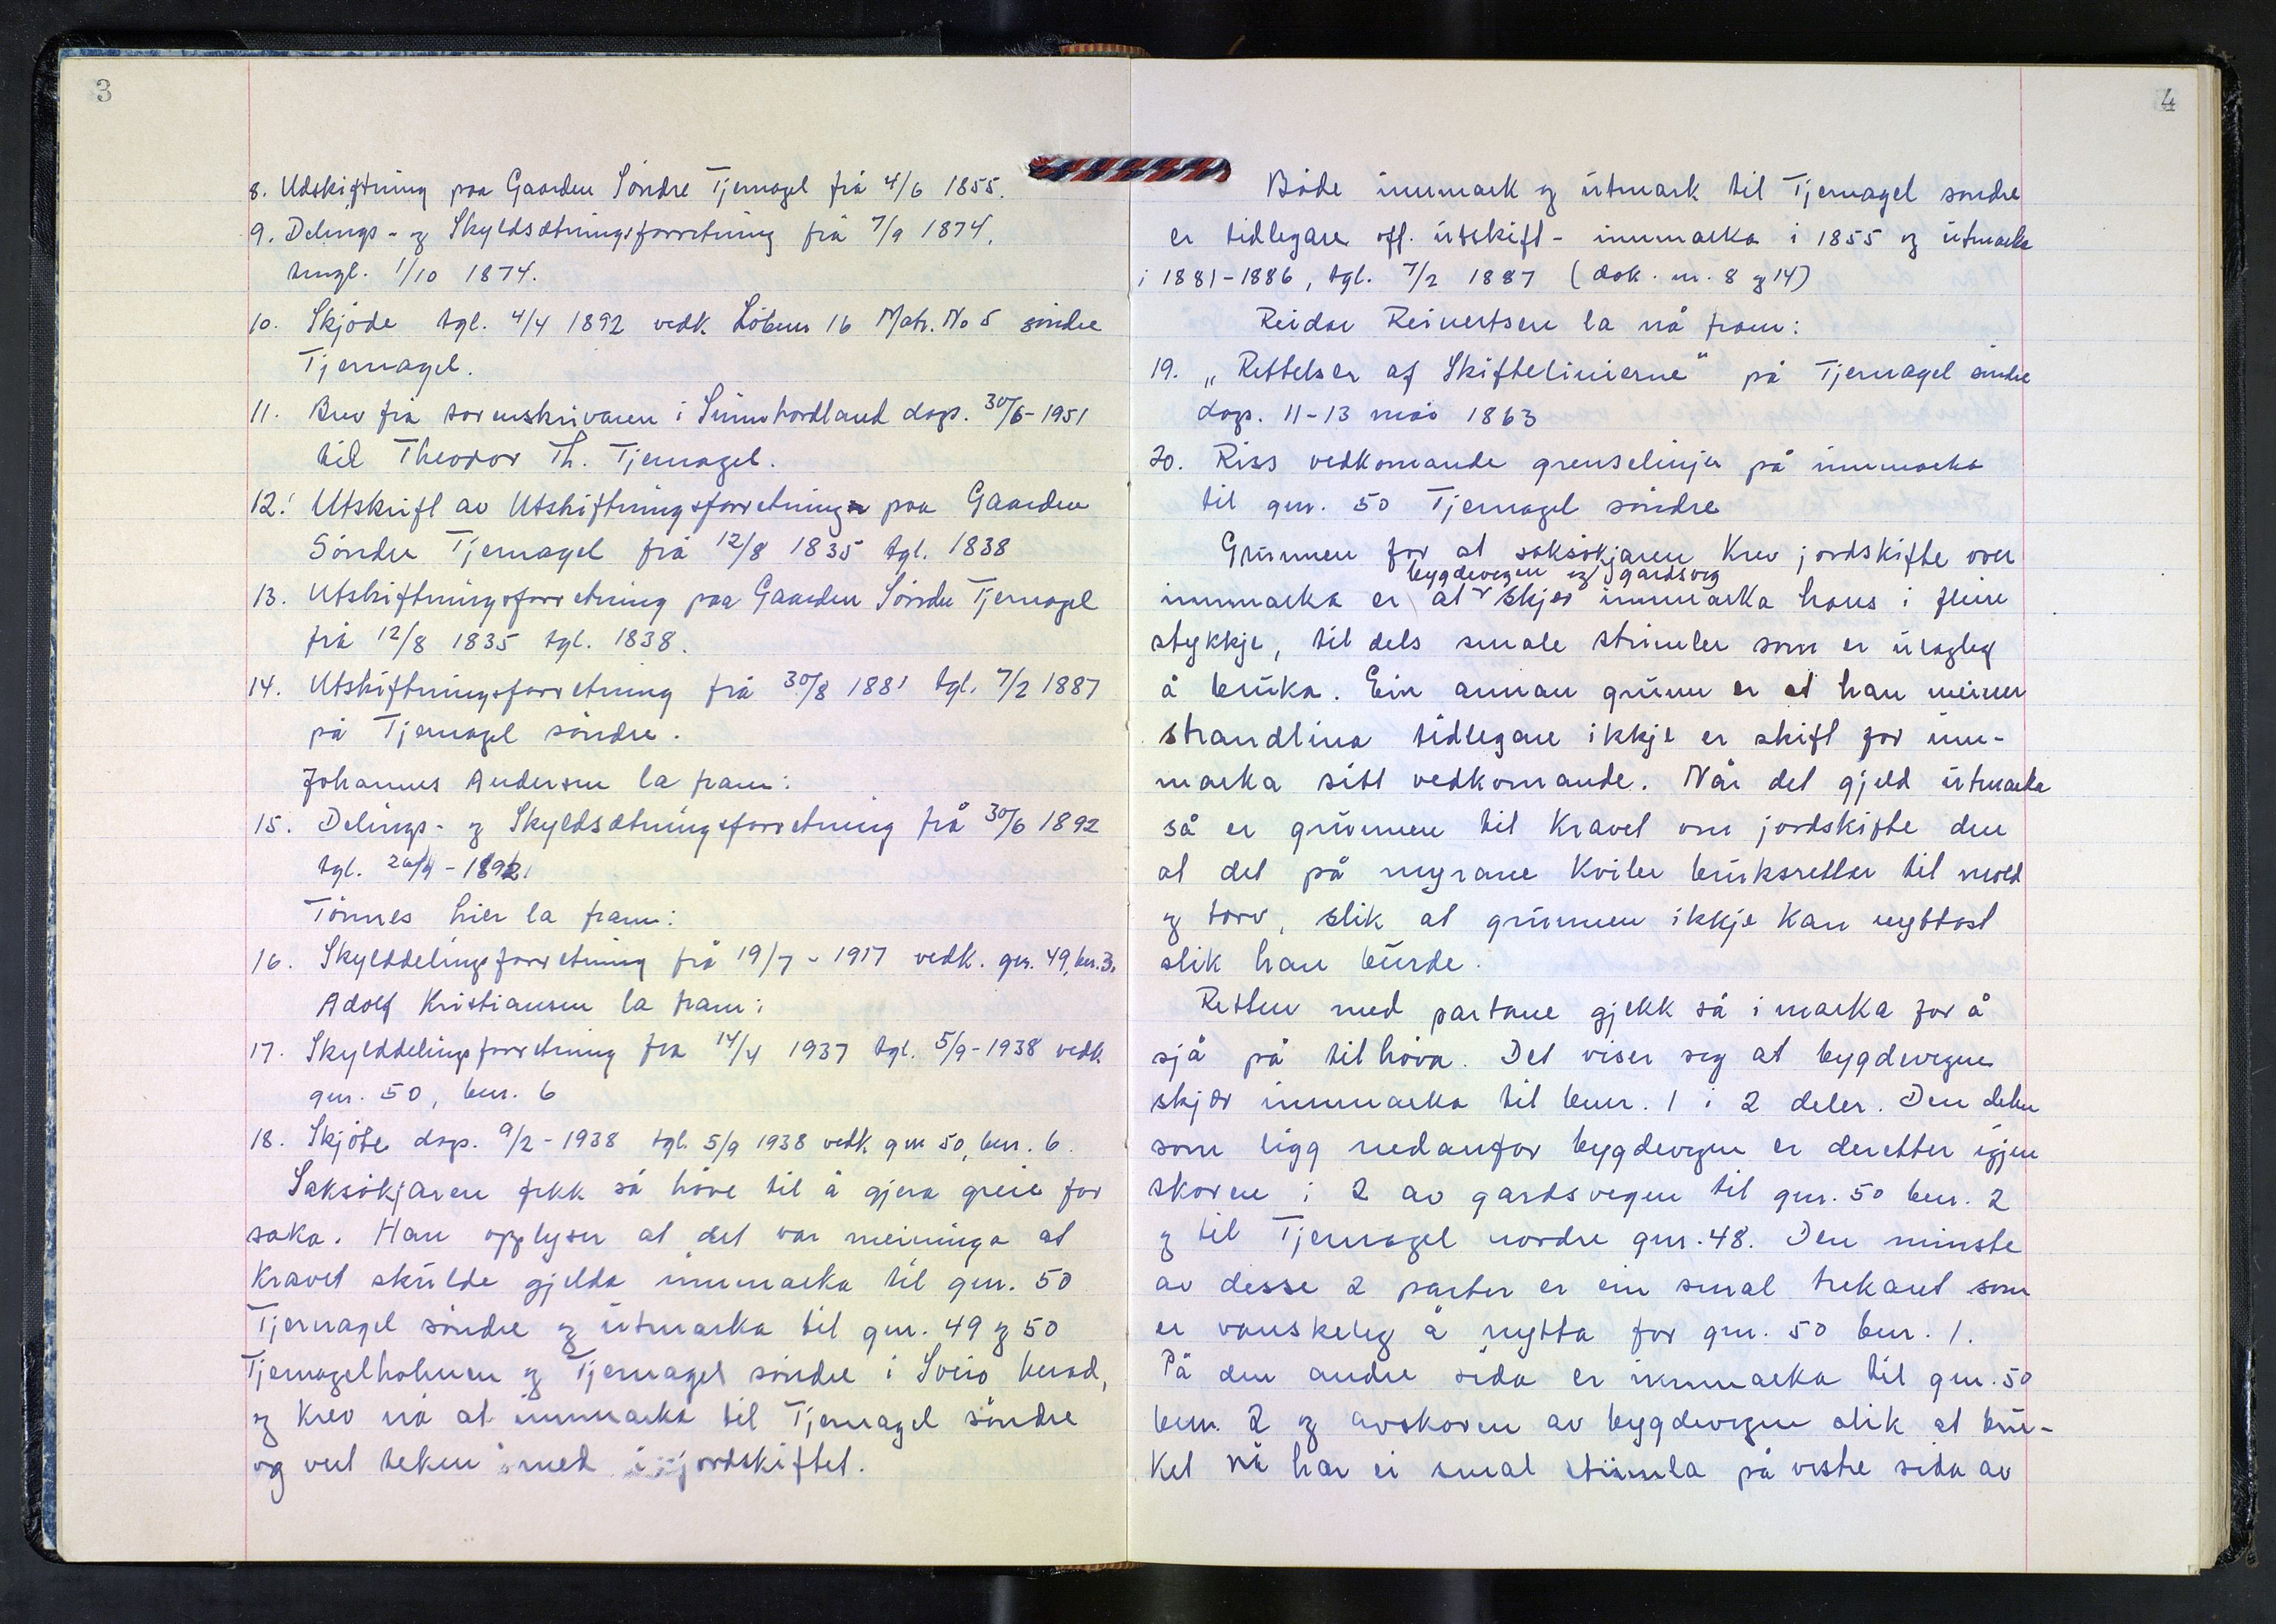 3
8. Udskiftning paa Gaarden Söndre Tjernagel frå 4/6 1855.
9. Delings- og Skyldsætningsforretning frå 7/9 1874,
tingl. 1/10 1874.
10. Skjöde tgl. 4/4 1892 vedk. Löbenr 16 Matr. No 5 söndre
Tjernagel.
11. Brev frå sorenskrivaren i Sunnhordland dags. 30/6-1951
til Theodor Th. Tjernagel.
12. Utskrift av Utskiftningsforretning paa Gaarden
Söndre Tjernagel frå 12/8 1835 tgl. 1838
13. Utskiftningsforretning paa Gaarden Söndre Tjernagel
frå 12/8 1835 tgl. 1838.
14. Utskiftningsforretning frå 30/8 1881 tgl. 7/2 1887
på Tjernagel söndre.
Johannes Andersen la fram:
15. Delings- og Skyldsætningsforretning frå 30/6 1892
tgl. 26/9-1892.
Tönnes Lier la fram:
16. Skylddelingsforretning frå 19/7-1917 vedk. gnr. 49, bnr. 3.
Adolf Kristiansen la fram:
17. Skylddelingsforretning fra 14/4 1937 tgl. 5/9-1938 vedk
gnr. 50, bnr. 6
18. Skjöte dags. 9/2-1938 tgl. 5/9 1938 vedk gnr 50, bnr. 6.
Saksökjaren fekk så höve til å gjera greie for
saka. Han opplyser at det var meininga at
kravet skulde gjelda innmarka til gnr. 50
Tjernagel söndre og utmarka til gnr. 49 og 50
Tjernagelholmen og Tjernagel söndre i Sveio herad,
og krev nå at innmarka til Tjernagel söndre
og vert teken med i jordskiftet.
4
Både innmark og utmark til Tjernagel söndre
er tidlegare off. utskift - innmarka i 1855 og utmarka
i 1881-1886, tgl. 7/2 1887 (dok. nr. 8 og 14)
Reidar Reinertsen la nå fram:
19. „Rettelser af Skiftelinierne“ på Tjernagel söndre
dags. 11-13 mai 1863
20. Riss vedkomande grenselinjer på innmarka
til gnr. 50 Tjernagel söndre
Grunnen for at saksökjaren krev jordskifte over
bygdevegen og gardsveg
innmarka er at skjer innmarka hans i fleire
stykkje, til dels smale strimler som er ulagleg
å bruka. Ein annan grunn er at han meiner
strandlina tidlegare ikkje er skift for inn-
marka sitt vedkomande. Når det gjeld utmarka
så er grunnen til kravet om jordskifte den
at det på myrane kviler bruksretter til mold
og torv, slik at grunnen ikkje kan nyttast
slik han burde.
Retten med partane gjekk så i marka for å
sjå på tilhöva. Det viser seg at bygdevegen
skjer innmarka til bnr. 1 i 2 deler. Den delen
som ligg nedanfor bygdevegen er deretter igjen
skoren i 2 av gardsvegen til gnr. 50 bnr. 2
og til Tjernagel nordre gnr. 48. Den minste
av desse 2 parter er ein smal trekant som
er vanskeleg å nytta for gnr. 50 bnr. 1.
På den andre sida er innmarka til gnr. 50
bnr. 2 og avskoren av bygdevegen slik at bru-
ket nå har ei smal strimla på vestre sida av